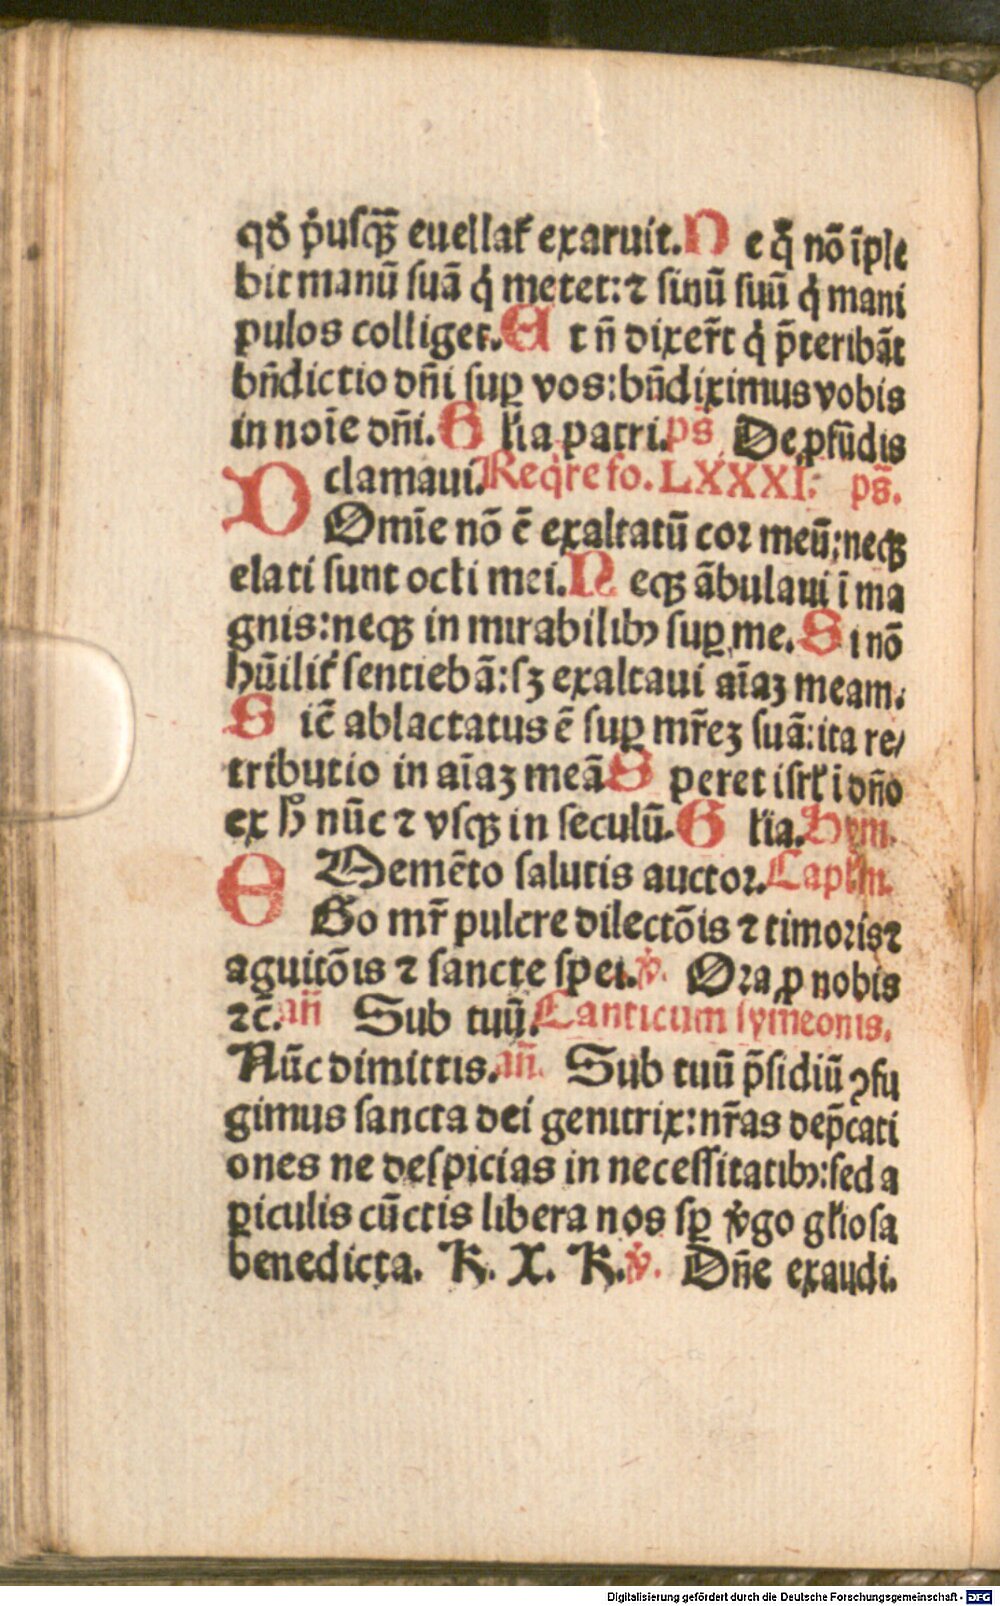 qđ p̓usqꝫ̄ euellať exaruit. N e q̄ nō īple
bit manū suā q̓ metet: ⁊ sinū suū q̓ mani
pulos colliget. E t n̄ dixer̄t q̓ p̄teribāt
bn̄dictio dn̄i suꝑ vos: bn̄diximus vobis
in noīe dn̄i. G ľia patri. ps̄ De ꝓfūdis
clamaui. Reqͥre fo. LXXXI. ps̄.
D Omīe nō ē exaltatū cor meū: neqꝫ
elati sunt ocľi mei. N eqꝫ ābulaui ī ma
gnis: neqꝫ in mirabilibꝰ suꝑ me. S i nō
hūiliť sentiebā: sꝫ exaltaui aīaꝫ meam.
S ic̄ ablactatus ē suꝑ mr̄eꝫ suā: ita re/
tributio in aīaꝫ meā S peret isrľ i dn̄o
ex h̄ nūc ⁊ vsqꝫ in seculū. G ľia. Hym.
Memēto salutis auctor. Capľm.
E Go mr̄ pulcre dilectōis ⁊ timoris ⁊
aguitōis ⁊ sancte spei. v̓. Ora ꝓ nobis
⁊c̄. an̄ Sub tuū. Canticum symeonis.
Nūc dimittis. an̄. Sub tuū p̄sidiū ꝯfu
gimus sancta dei genitrix: nr̄as dep̄cati
ones ne despicias in necessitatibꝰ: sed a
ꝑiculis cūctis libera nos sꝑ v̓go gľiosa
benedicta. K. X. K. v̓. Dn̄e exaudi.
Digitalisierung gefördert durch die Deutsche Forschungsgemeinschaft - DFG